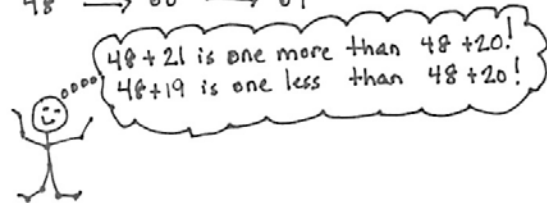 48
48+21 is one more than 48+20!
48+19 is one less than 48+20!